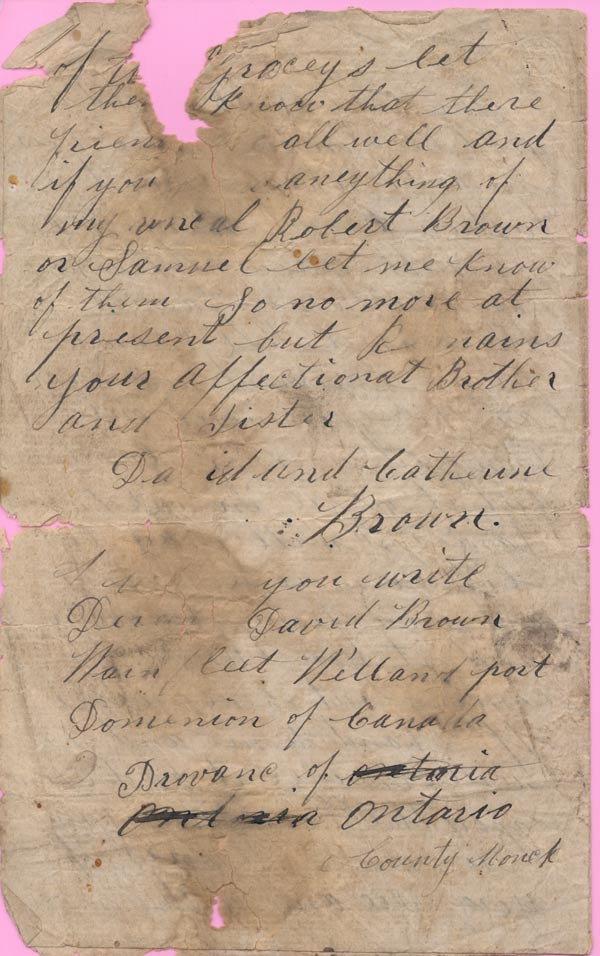 of graceys let
then know that there
all well and
if you aneything of
my uncal Robert Brown
or Samuel let me know
of them So no more at
present but Remains
your affectionat Brother
and Sister
David and Catherine
Brown.
you write
David Brown
Wainfleet Welland port
Domenion of Canada
Provanc of ontaria
ontaria ontario
County Monck